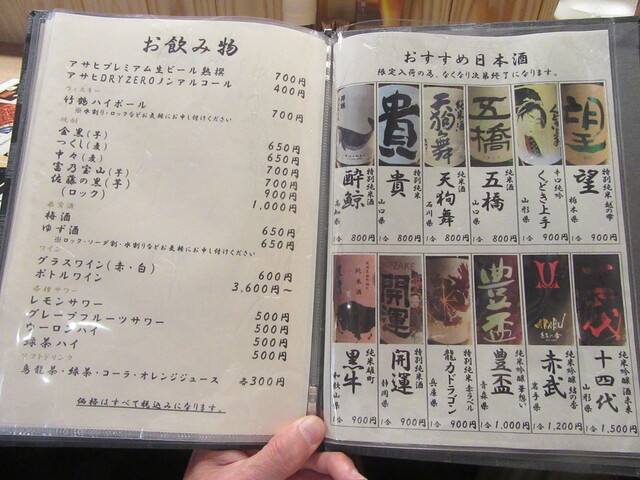 お飲み物
アサヒプレミアム生ビール熟撰 700円
アサヒDRYZEROノンアルコール 400円
ウィスキー
竹鶴ハイボール 700円
※水割り・ロックなどお気軽にお申し付けください
焼酎
金黒(芋) 650円
つくし(麦) 650円
中々(麦) 700円
富乃宝山(芋) 700円
佐藤の黒(芋) 900円
(ロック) 1,000円
果実酒
梅酒 650円
ゆず酒 650円
※ロック・ソーダ割・水割りなどお気軽にお申し付けください
ワイン
グラスワイン(赤・白) 600円
ボトルワイン 3,600円～
各種サワー
レモンサワー 500円
グレープフルーツサワー 500円
ウーロンハイ 500円
緑茶ハイ 500円
ソフトドリンク
烏龍茶・緑茶・コーラ・オレンジジュース 各300円
価格はすべて税込みになります。
おすすめ日本酒
限定入荷の為、なくなり次第終了になります。
貴
天狗舞
五橋
望
特別純米酒
酔鯨
高知県
1合 800円
特別純米
貴
山口県
1合 800円
純米酒
天狗舞
石川県
1合 800円
純米酒
五橋
山口県
1合 800円
辛口純吟
くどき上手
山形県
1合 900円
特別純米 越の雫
望
栃木県
1合 900円
純米酒
開運
豊盃
AKABU
十四代
純米雄町
黒牛
和歌山県
1合 900円
特別純米酒
開運
静岡県
1合 900円
特別純米 赤ラベル
龍力ドラゴン
兵庫県
1合 900円
純米吟醸 華想い
豊盃
青森県
1合 1,000円
純米吟醸 結の香
赤武
岩手県
1合 1,200円
純米吟醸 酒未来
十四代
山形県
1合 1,500円